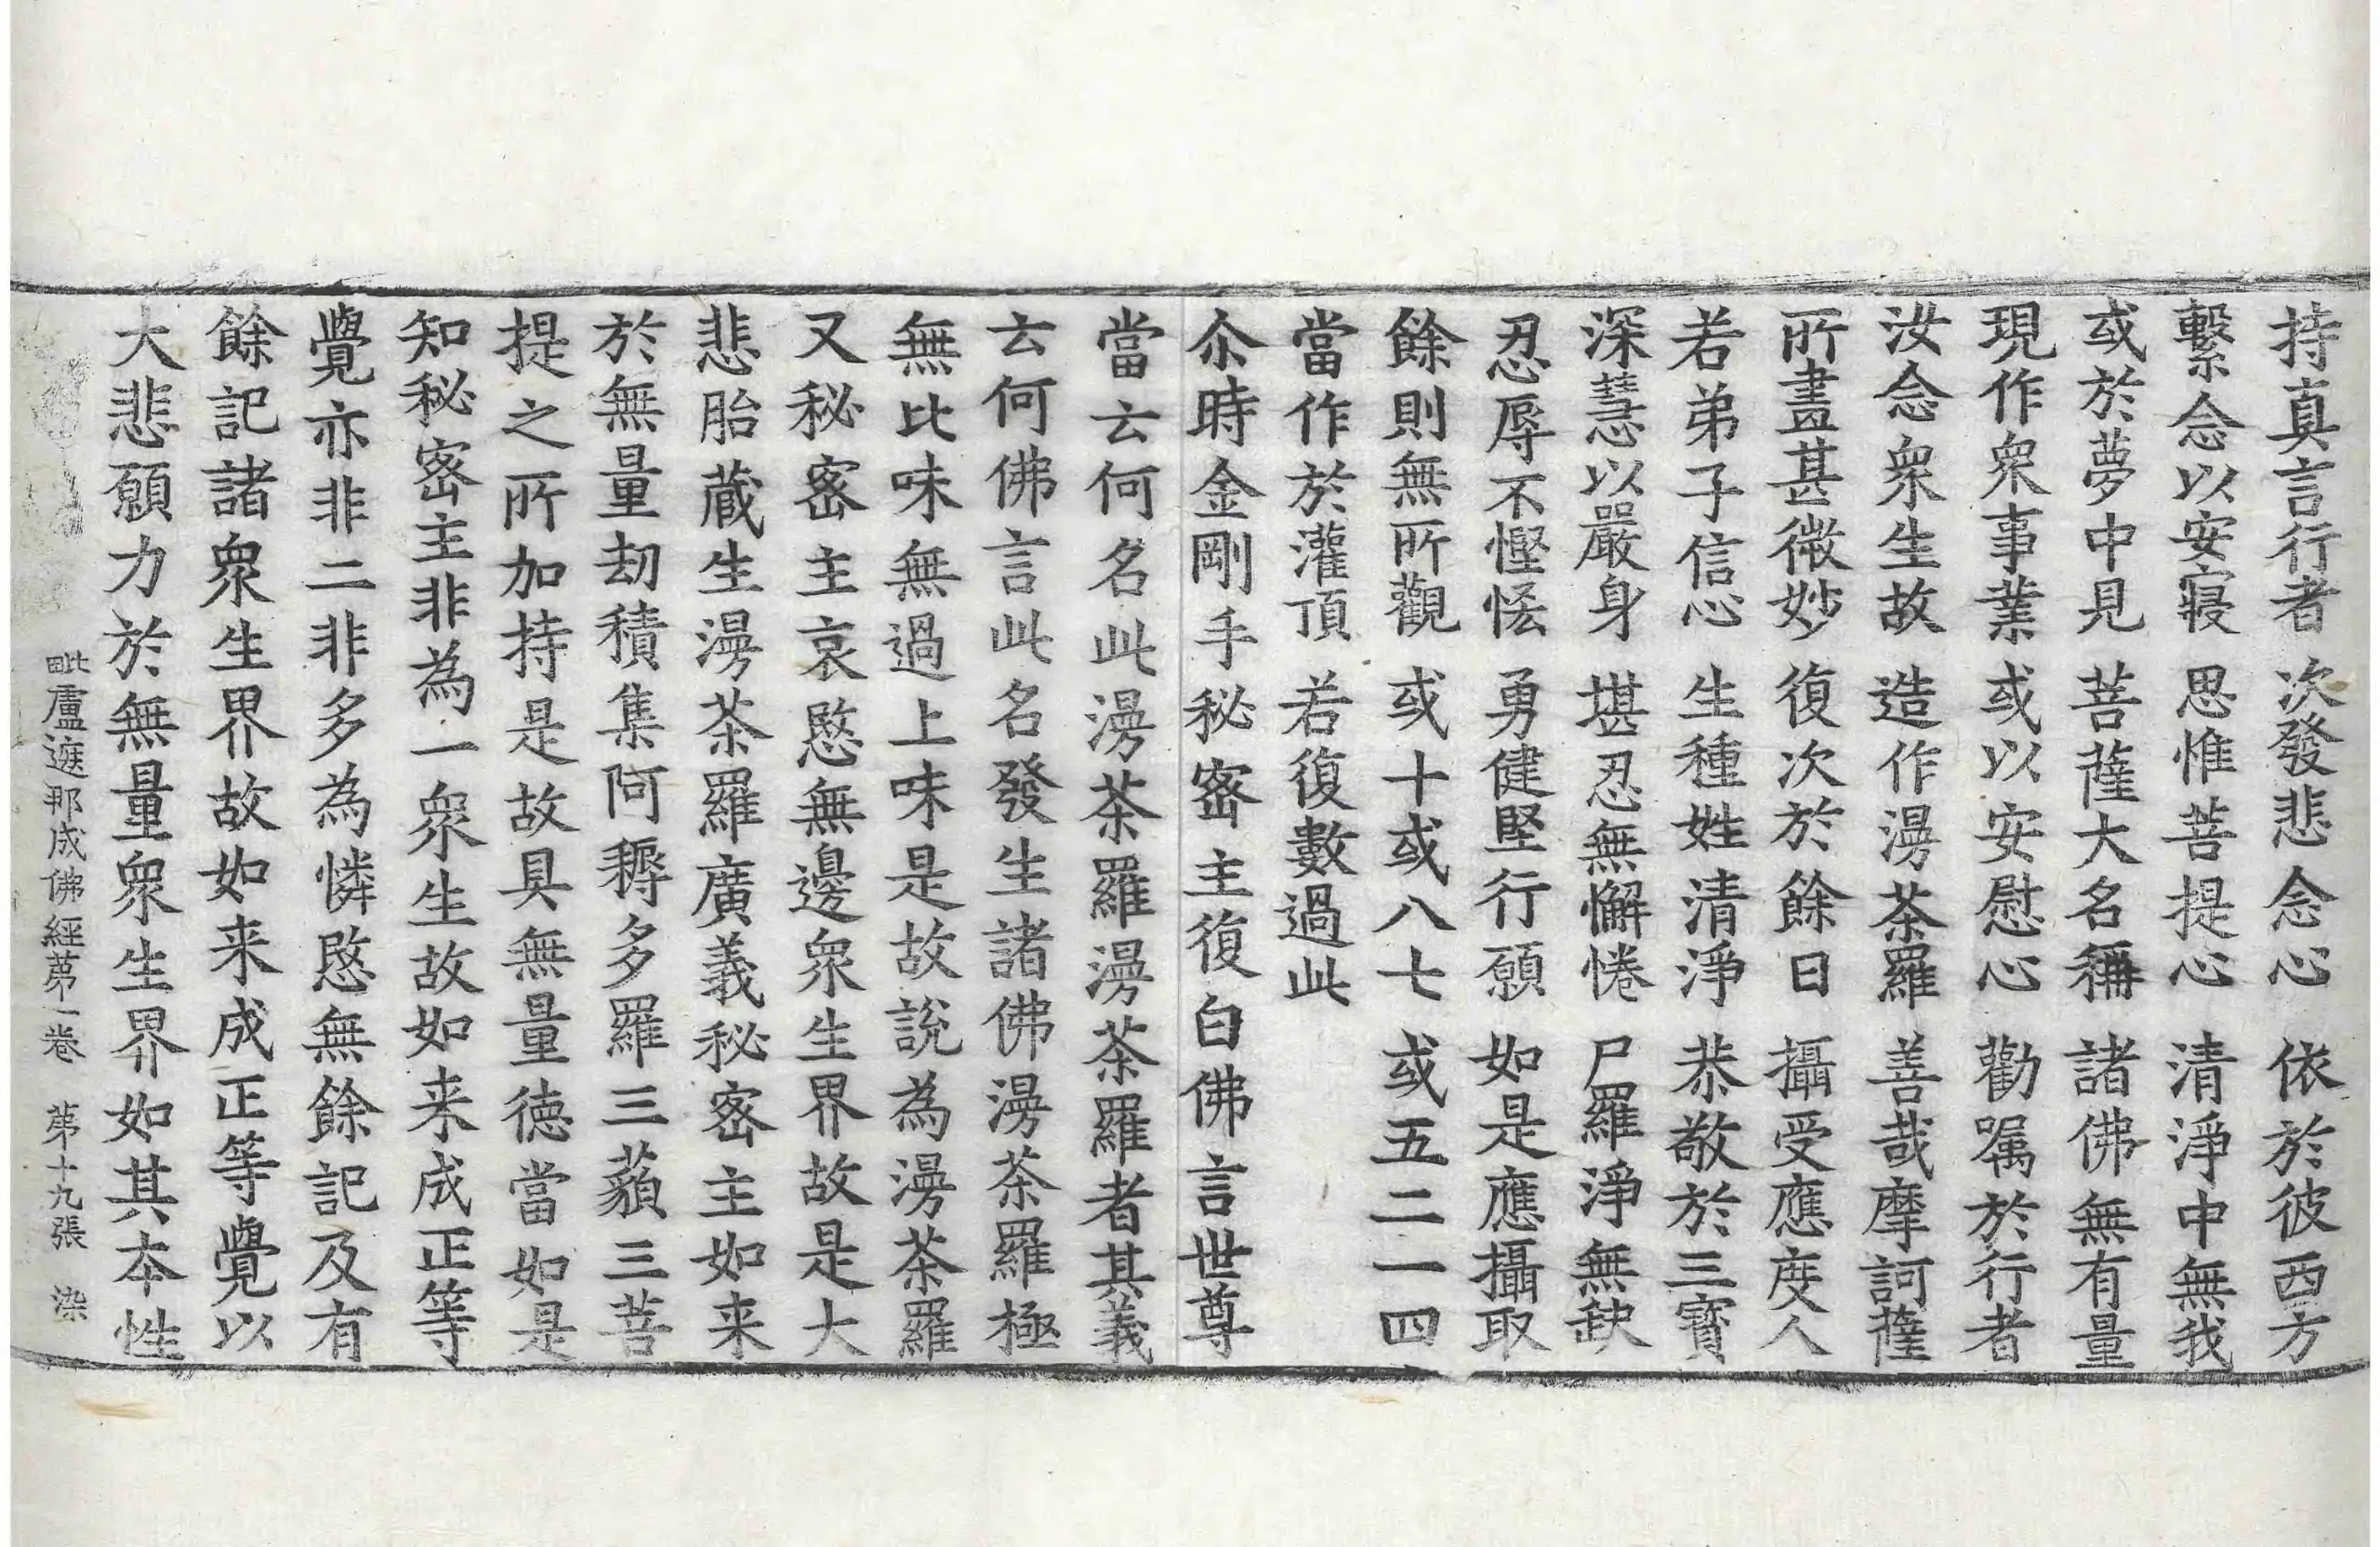 持真言行者　次發悲念心　依於彼西方
繫念以安寢　思惟菩提心　清淨中無我
或於夢中見　菩薩大名稱　諸佛無有量
現作衆事業　或以安慰心　勸囑於行者
汝念衆生故　造作漫茶羅　善哉摩訶薩
所畫甚微妙　復次於餘日　攝受應度人
若弟子信心　生種姓清淨　恭敬於三寶
深慧以嚴身　堪忍無懈惓　尸羅淨無缺
忍辱不慳悋　勇健堅行願　如是應攝取
餘則無所觀　或十或八七　或五二一四
當作於灌頂　若復數過此
尒時金剛手秘密主復白佛言世尊
當云何名此漫茶羅漫茶羅者其義
云何佛言此名發生諸佛漫茶羅極
無比味無過上味是故說為漫茶羅
又秘密主哀愍無邊衆生界故是大
悲胎蔵生漫茶羅廣義秘密主如来
於無量劫積集阿耨多羅三藐三菩
提之所加持是故具無量徳當如是
知秘密主非為一衆生故如来成正等
覺亦非二非多為憐愍無餘記及有
餘記諸衆生界故如来成正等覺以
大悲願力於無量衆生界如其本性
毗盧遮那成佛經第一卷　第十九張　染